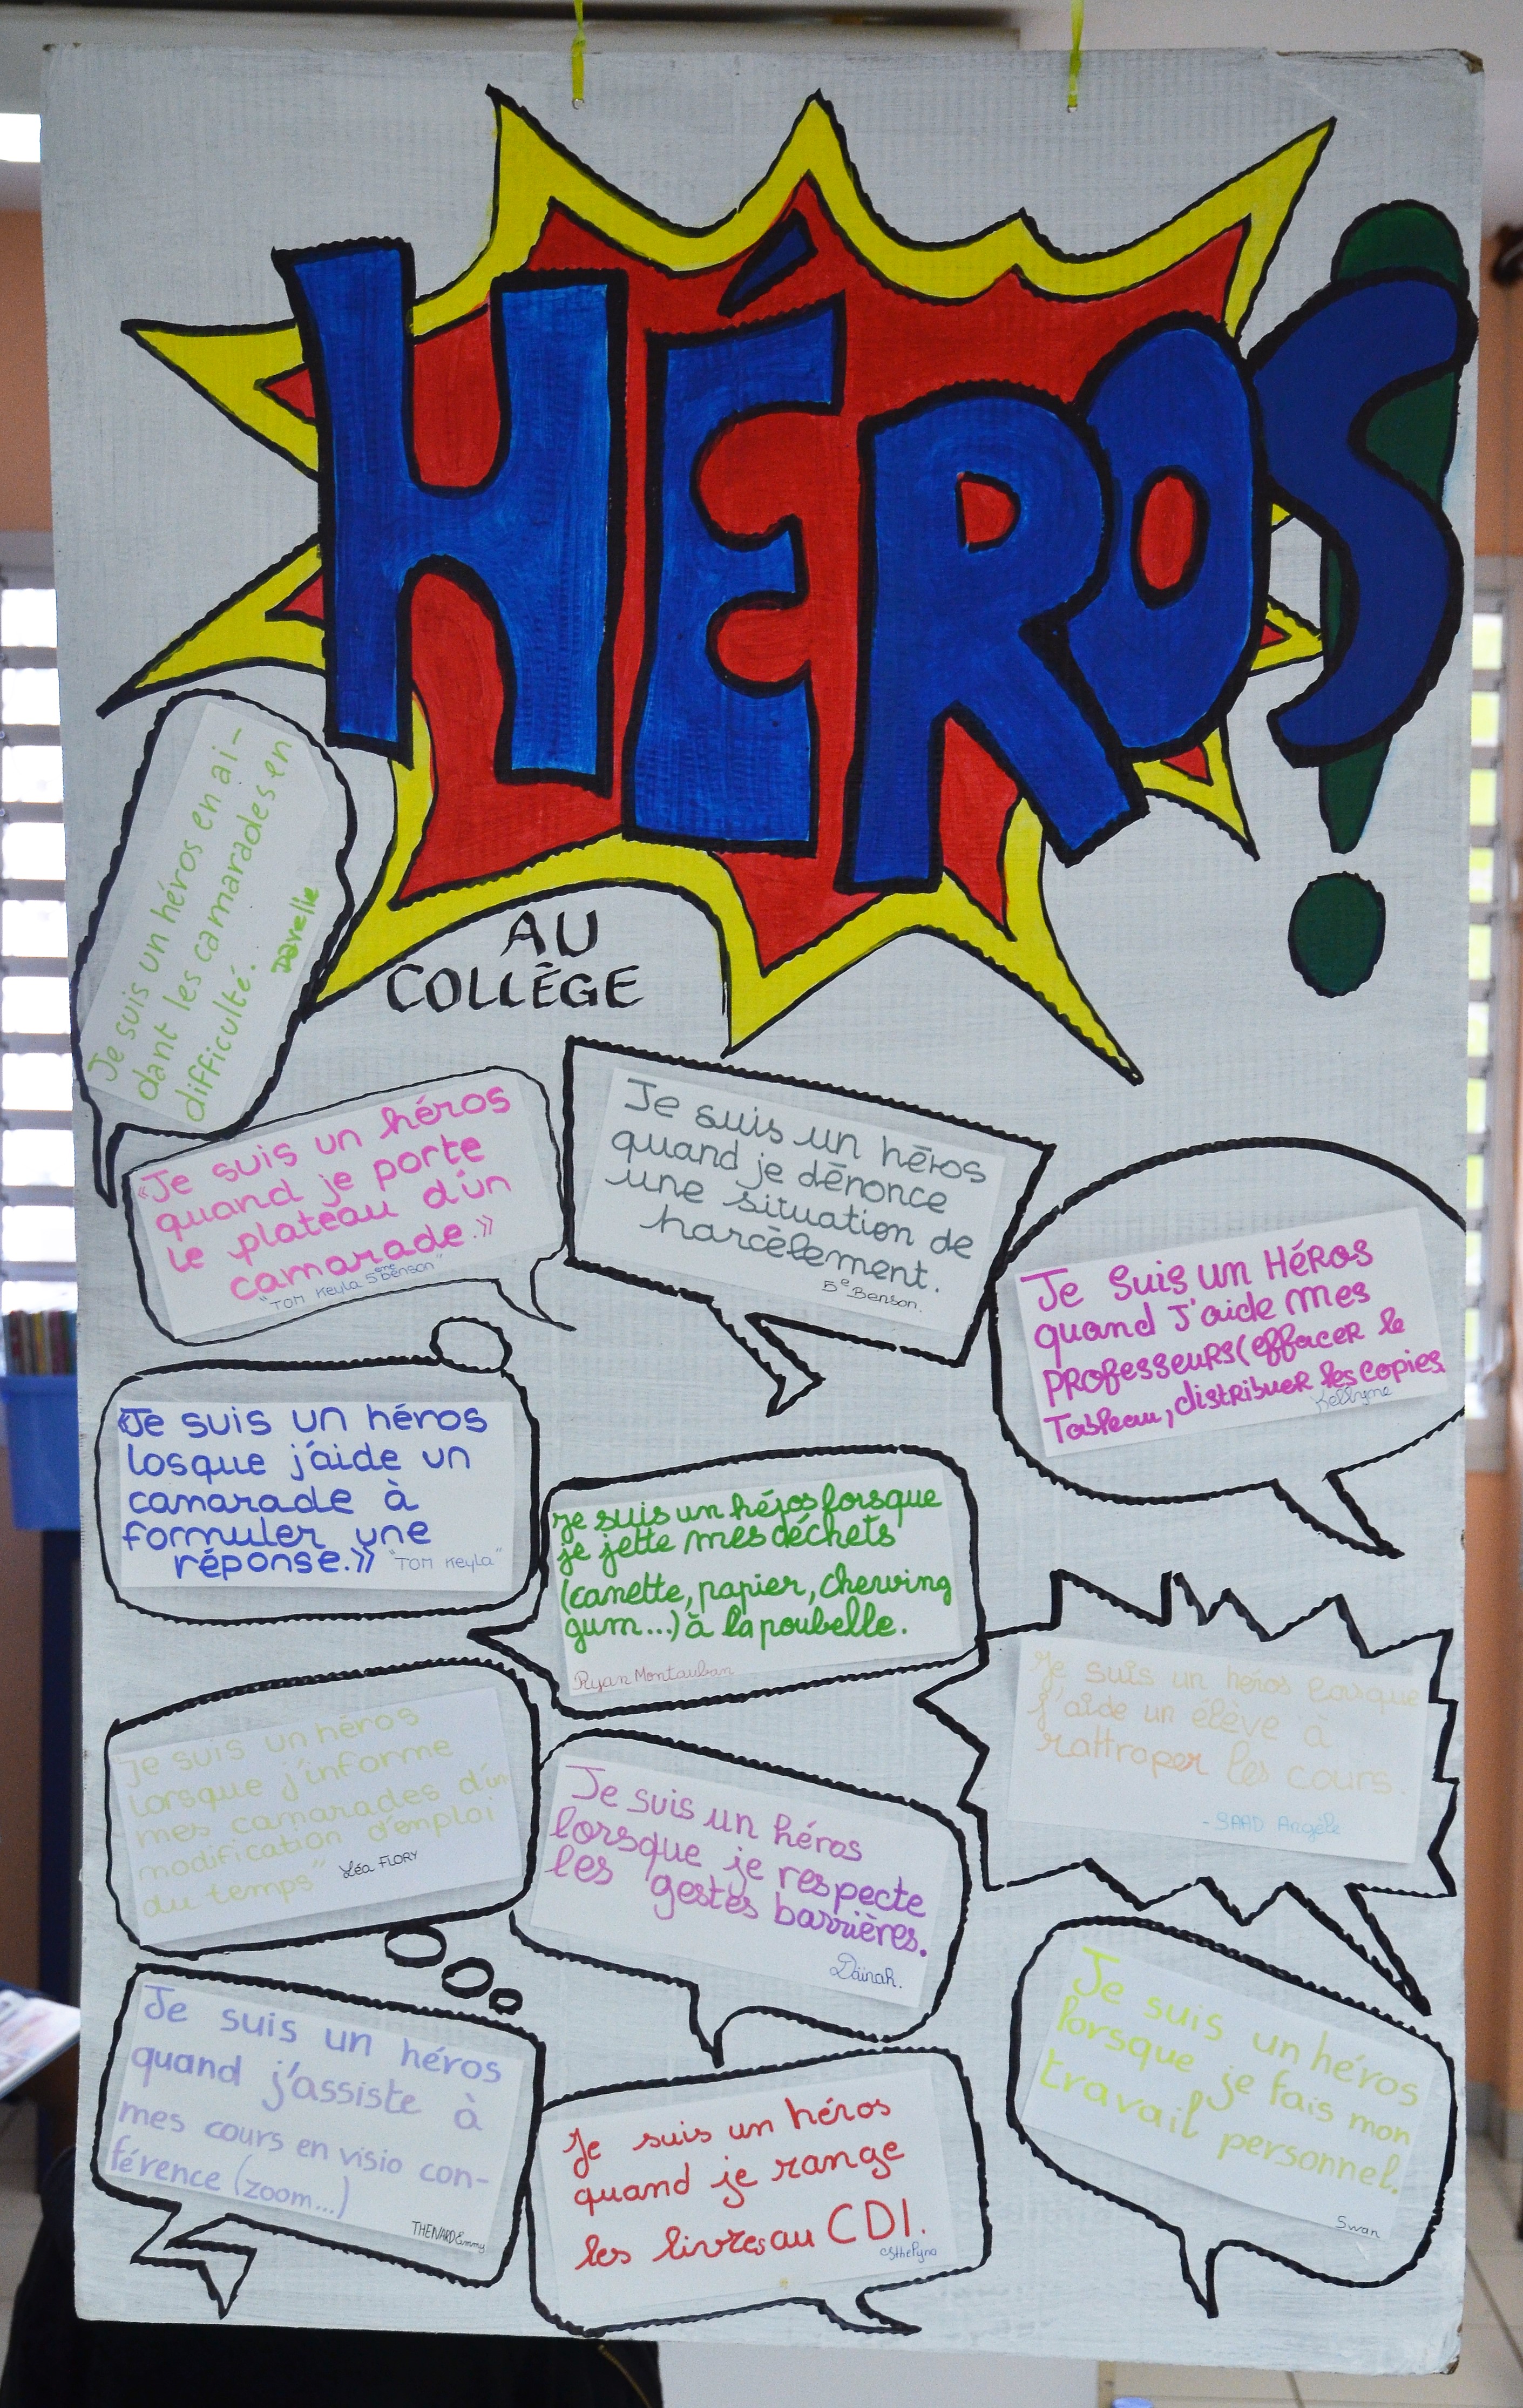 HÉROS!
AU
COLLÈGE
Je suis un héros en ai-
dant les camarades en
difficulté.
Davelie
«Je suis un héros
quand je porte
le plateau d'un
camarade.»
"TOM Keyla 5ème Benson"
Je suis un héros
quand je dénonce
une situation de
harcèlement.
5e Benson.
Je suis un Héros
quand j'aide mes
professeurs (effacer le
Tableau, distribuer les copies
Kellyme
«Je suis un héros
losque j'aide un
camarade à
formuler une
réponse.» "TOM Keyla"
je suis un héros lorsque
je jette mes déchets
(canette, papier, chewing
gum...) à la poubelle.
Ryan Montauban
Je suis un héros lorsque
j'aide un élève à
rattraper les cours
-SAAD Argèle
Je suis un héros
lorsque j'informe
mes camarades d'un
modification d'emploi
du temps" Léa FLORY
Je suis un héros
lorsque je respecte
les gestes barrières.
Daïnah.
Je suis un héros
lorsque je fais mon
travail personnel.
Swan
Je suis un héros
quand j'assiste à
mes cours en visio con-
férence (zoom...)
THENARD Emmy
Je suis un héros
quand je range
les livres au CDI.